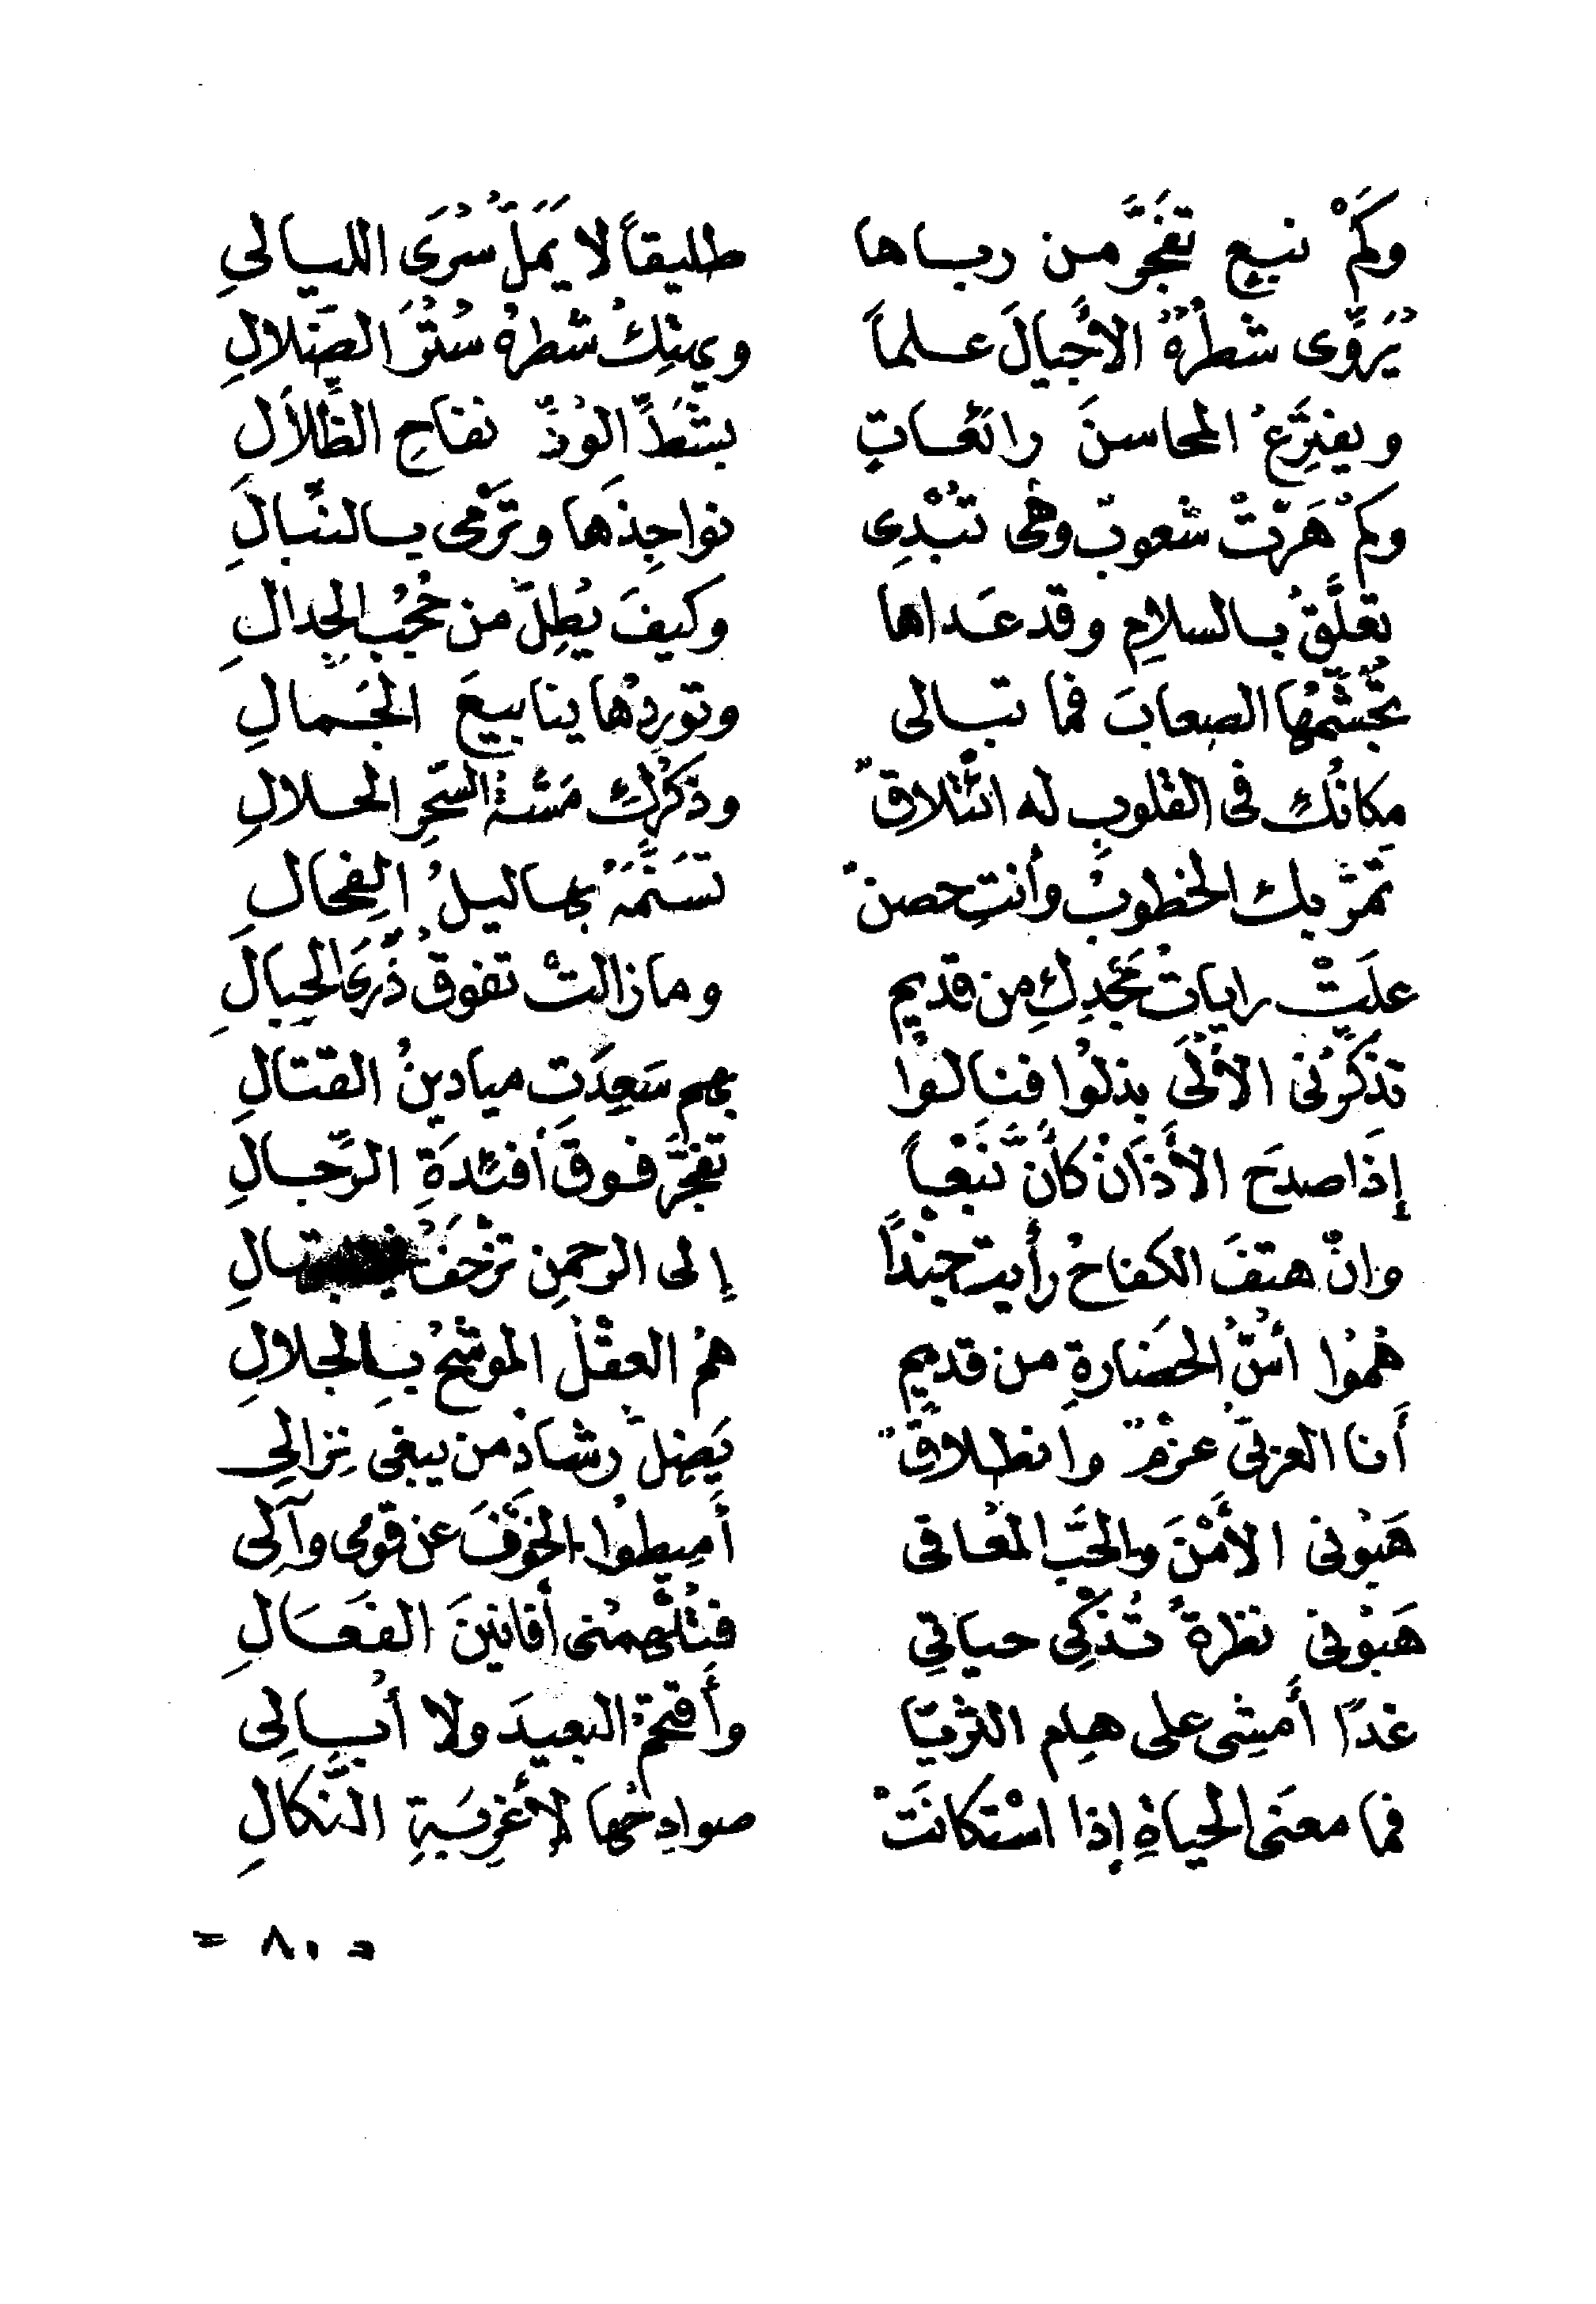 وكَمْ نبعٍ تفَجَّر من رباها طليقاً لا يَمَلُّ سُرَى الليالي
يُرَوِّى شطْرُهُ الأجيالَ علماً ويهتِكُ شطرهُ سُتُرَ الضَّلالِ
ويفترِعُ المحاسنَ رائعاتٍ بشَطِّ الوُدِّ نفاحِ الظِّلالِ
وكمْ هَرّتْ شعوبٌ وهى تُبْدِى نواجِذَها وتَرْمى بالنِّبالِ
تعلَّقُ بالسلامِ وقد عَداها وكيفَ يُطِلّ من حُجُبِ الجِدالِ
تجُشِّمُها الصعابَ فما تبالى وتورِدُها ينابيعَ الجَمالِ
مكانُكِ فى القلوبِ له ائتلاقٌ وذكرُكِ مَسَّةُ السِّحرِ الحلالِ
تمرّ بك الخطوبُ وأنتِ حصنٌ تسَنَّمَهُ بهاليلُ الِفحالِ
علَتْ راياتُ مَجْدِكِ من قديمٍ وما زالتْ تفوقُ ذُرَى الجِبالِ
تذكِّرُنى الأُلَى بذلُوا فنالوُا بهم سَعِدَتِ ميادينُ القتالِ
إذَا صدحَ الأذَانْ كأنَّ نَبْعاً تفجَّر فوقَ أفئدَةِ الرِّجالِ
وانْ هتفَ الكفاحُ رأيت جندًا إلى الرحمنِ تزْحَفُ
هُمُوا أُسُّ الحَضارةِ من قديمٍ همُ العقْلُ الموشحُ بالجلالِ
أَنا العربىُّ عزْمٌ وانطلاقٌ يَضِلّ رشادُ من يبغى نِزالِى
هَبُونى الأَمْنَ والحُبَّ المُعافى أَميِطوُا الخَوْفَ عن قومى وآلِى
هَبُونى نظرةً تُذْكِى حياتِي فتُلْهِمُنى أفانينَ الفَعَالِ
غدًا أَمشِى على هام الثريّا وأَقتحمُ البعيدَ ولا أُبالِى
فما معنَى الحياةِ إذا اسْتكانَتْ صوادِحُها لأغرِبَةِ النَّكالِ
= ٨٠ =